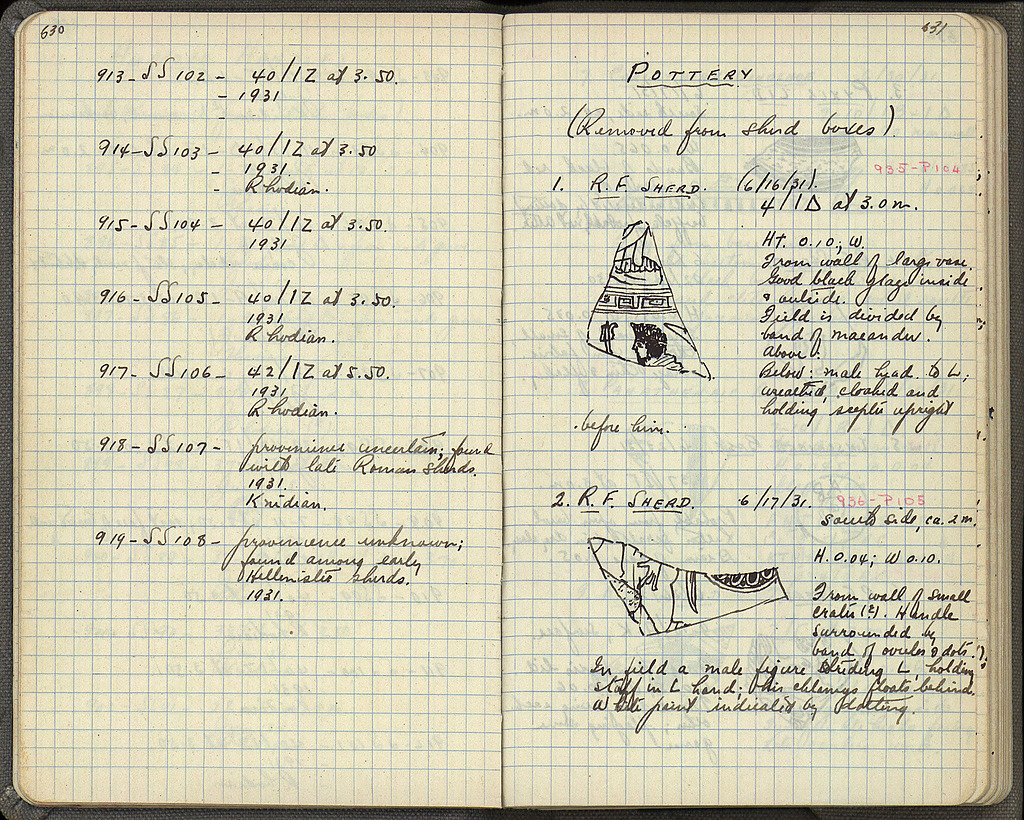 630
913 - SS 102 - 40/IZ at 3.50.
- 1931
-
914 - SS 103 - 40/IZ at 3.50
- 1931.
- Rhodian.
915 - SS 104 - 40/IZ at 3.50.
1931
916 - SS 105 - 40/IZ at 3.50.
1931
Rhodian.
917 - SS 106 - 42/IZ at 5.50.
1931
Rhodian.
918 - SS 107 - provenience uncertain; found
with late Roman sherds.
1931.
Knidian.
919 - SS 108 - provenience unknown;
found among early
Hellenistic sherds.
1931.
631
POTTERY
(Removed from sherd boxes)
935-P104
1. R.F. SHERD. (6/16/31).
4/IΔ at 3.0 m.
Ht. 0.10; W.
From wall of large vase.
Good black glaze inside
& outside.
Field is divided by
band of maeander.
Above:
Below: male head to L;
wreathed, cloaked and
holding scepter upright
before him.
2. R.F. SHERD. 6/17/31. 936-P105
South side, ca. 2 m.
H. 0.04; W 0.10.
From wall of small
crater (?). Handle
surrounded by
band of ovules & dots.
In field a male figure striding L, holding
staff in L hand; his chlamys floats behind.
White paint indicated by dotting.